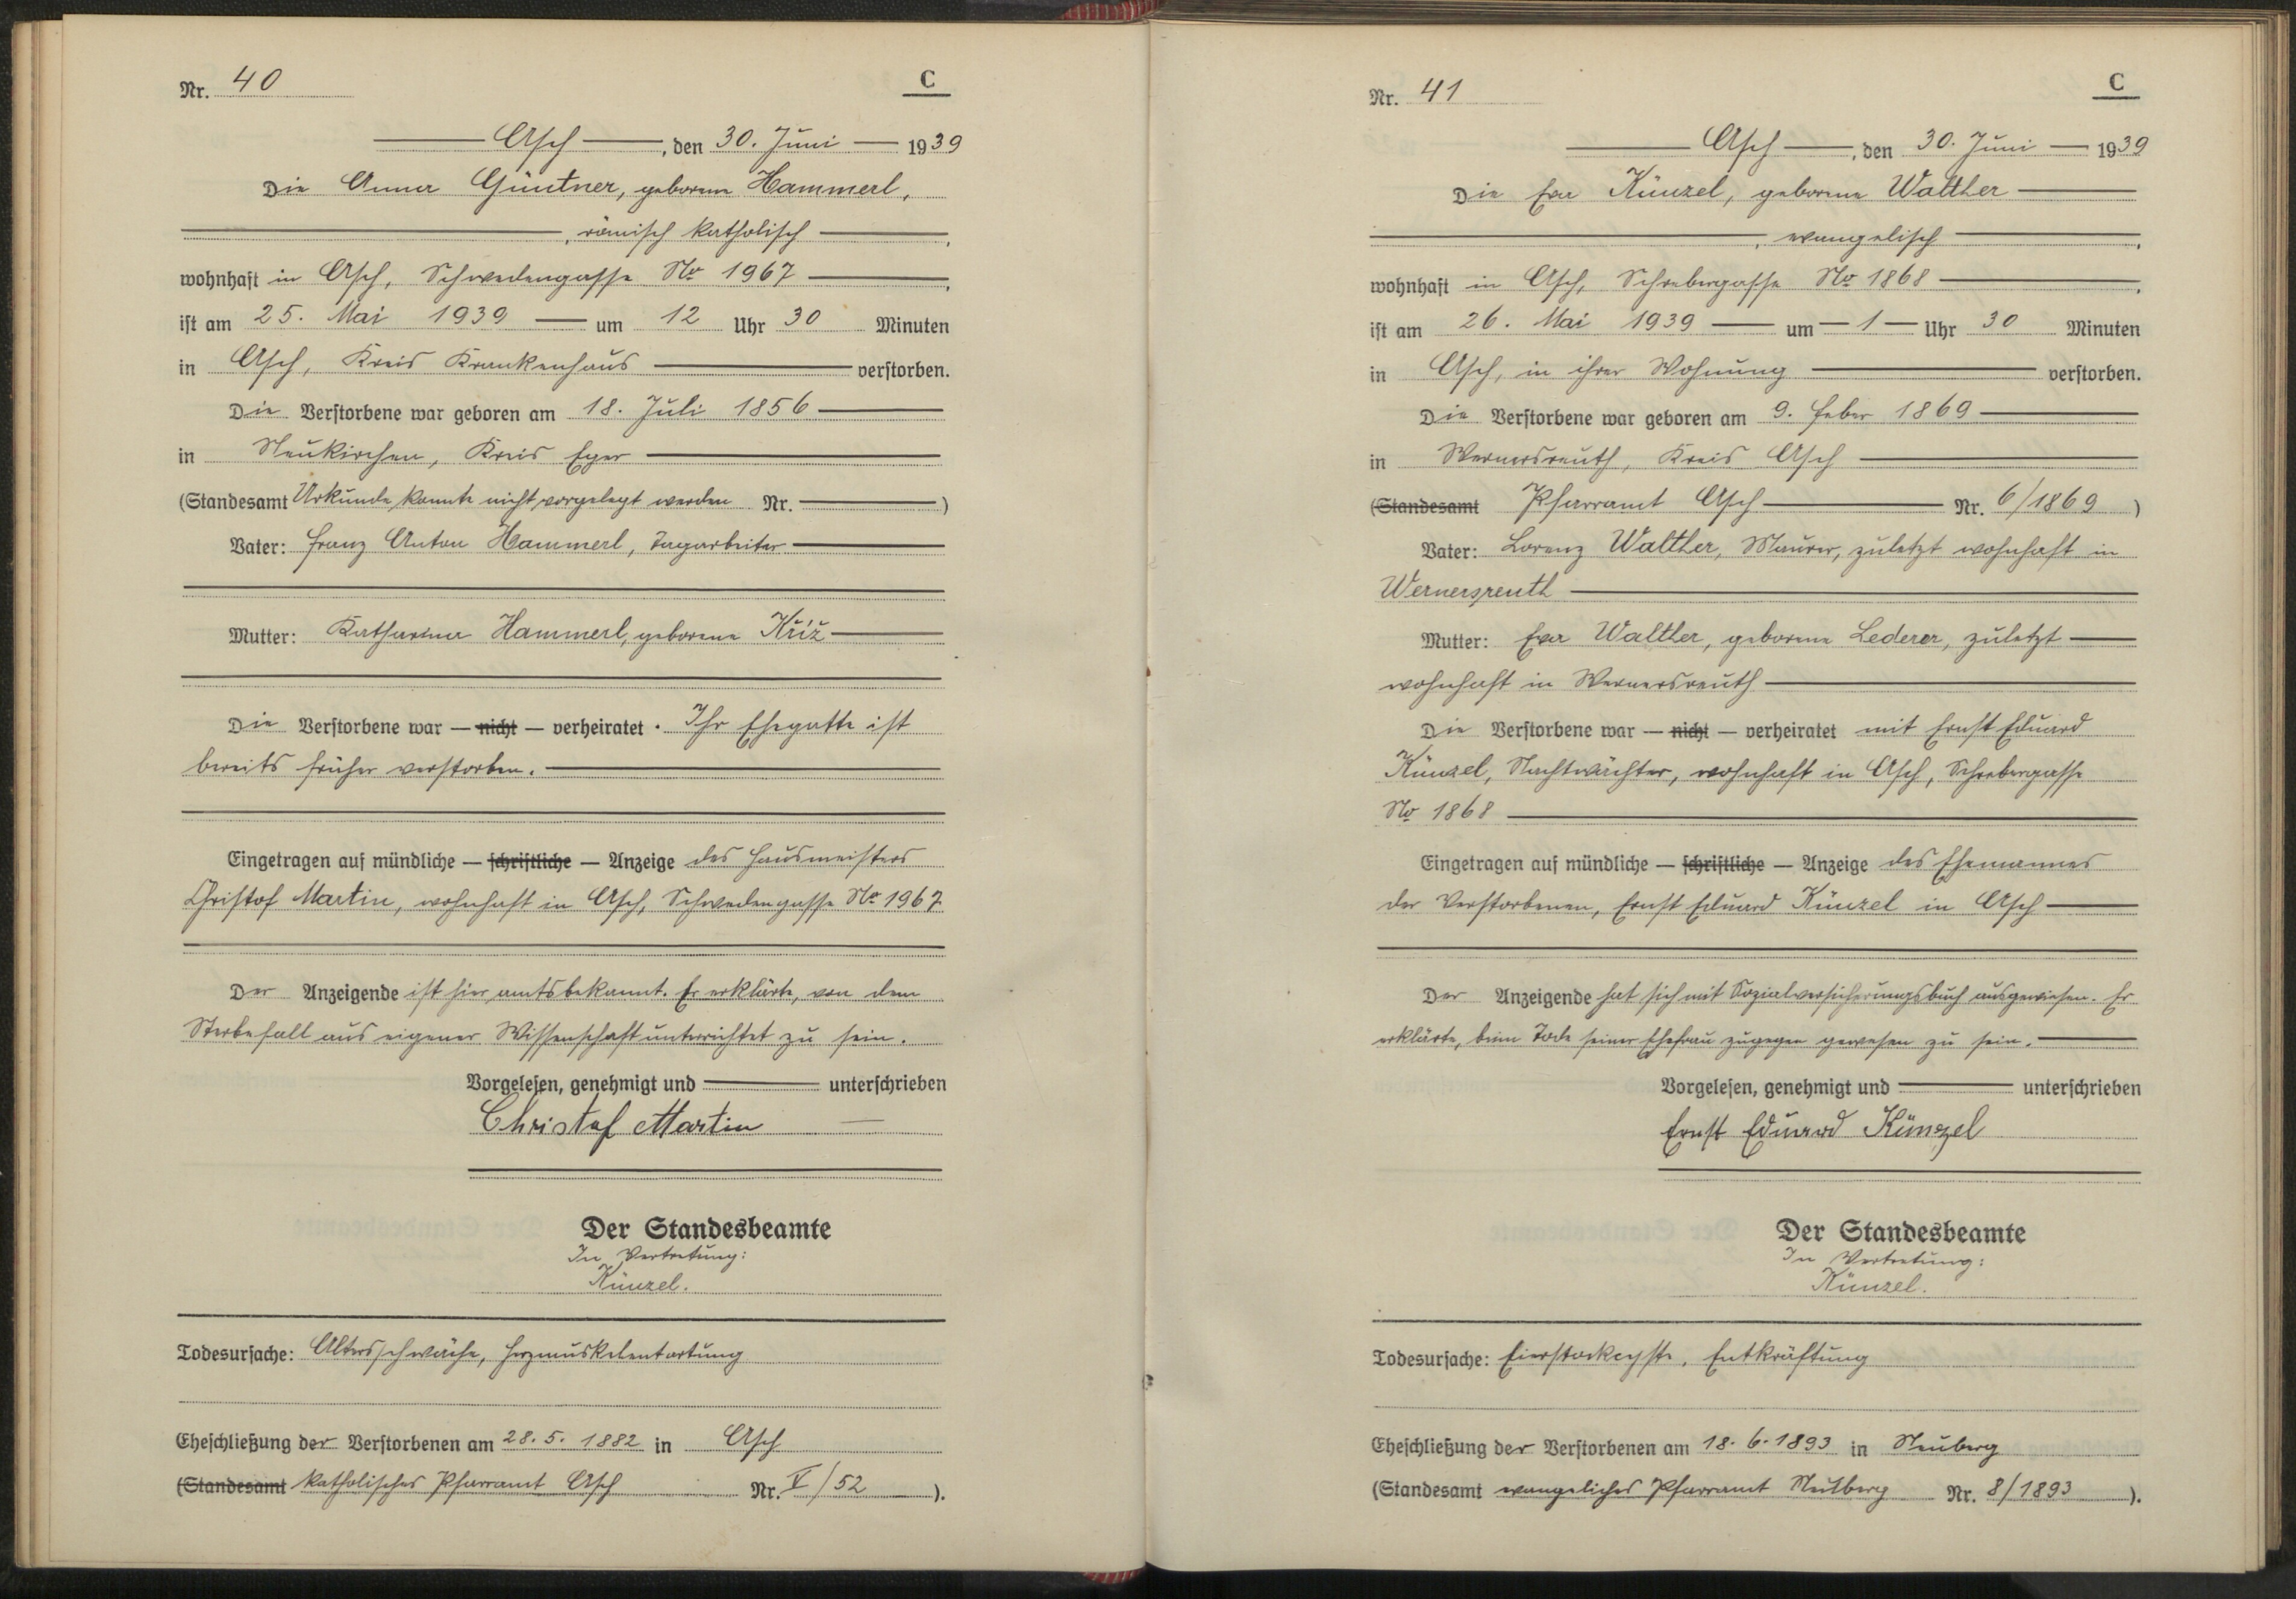 Nr. 40
C
Asch, den 30. Juni 1939
Die Anna Güntner, geborene Hammerl,
, römisch katholisch,
wohnhaft in Asch, Schwedengasse No 1967,
ist am 25. Mai 1939 um 12 Uhr 30 Minuten
in Asch, Kreis Krankenhaus verstorben.
Die Verstorbene war geboren am 18. Juli 1856
in Neukirchen, Kreis Eger
(Standesamt Urkunde konnte nicht vorgelegt werden Nr. )
Vater: Franz Anton Hammerl, Tagarbeiter
Mutter: Katharina Hammerl, geborene Kříž
Die Verstorbene war — nicht — verheiratet. Ihr Ehegatte ist
bereits früher verstorben.
Eingetragen auf mündliche — schriftliche — Anzeige des Hausmeisters
Christof Martin, wohnhaft in Asch, Schwedengasse No 1967
Der Anzeigende ist hier amtsbekannt. Er erklärte, von dem
Sterbefall aus eigener Wissenschaft unterrichtet zu sein.
Vorgelesen, genehmigt und unterschrieben
Christof Martin
Der Standesbeamte
In Vertretung:
Künzel.
Todesursache: Altersschwäche, Herzmuskelentartung
Eheschließung der Verstorbenen am 28. 5. 1882 in Asch
(Standesamt katholisches Pfarramt Asch Nr. V/52 ).
Nr. 41
C
Asch, den 30. Juni 1939
Die Eva Künzel, geborene Walther
, evangelisch,
wohnhaft in Asch, Schrebergasse No 1868,
ist am 26. Mai 1939 um — 1 — Uhr 30 Minuten
in Asch, in ihrer Wohnung verstorben.
Die Verstorbene war geboren am 9. Feber 1869
in Wernersreuth, Kreis Asch
(Standesamt Pfarramt Asch Nr. 6/1869 )
Vater: Lorenz Walther, Maurer, zuletzt wohnhaft in
Wernersreuth
Mutter: Eva Walther, geborene Lederer, zuletzt
wohnhaft in Wernersreuth
Die Verstorbene war — nicht — verheiratet mit Ernst Eduard
Künzel, Nachtwächter, wohnhaft in Asch, Schrebergasse
No 1868
Eingetragen auf mündliche — schriftliche — Anzeige des Ehemannes
der Verstorbenen, Ernst Eduard Künzel in Asch
Der Anzeigende hat sich mit Sozialversicherungsbuch ausgewiesen. Er
erklärte, beim Tode seiner Ehefrau zugegen gewesen zu sein.
Vorgelesen, genehmigt und unterschrieben
Ernst Eduard Künzel
Der Standesbeamte
In Vertretung:
Künzel.
Todesursache: Eierstockcyste, Entkräftung
Eheschließung der Verstorbenen am 18. 6. 1893 in Neuberg
(Standesamt evangeliches Pfarramt Neuberg Nr. 8/1893 ).